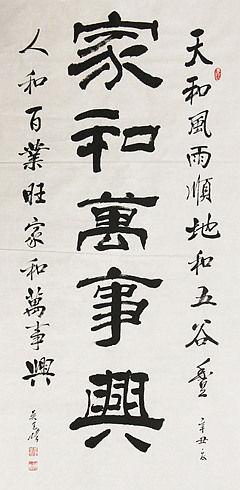 天和風雨順地和五谷豊
辛丑夏
家和萬事興
人和百業旺家和萬事興